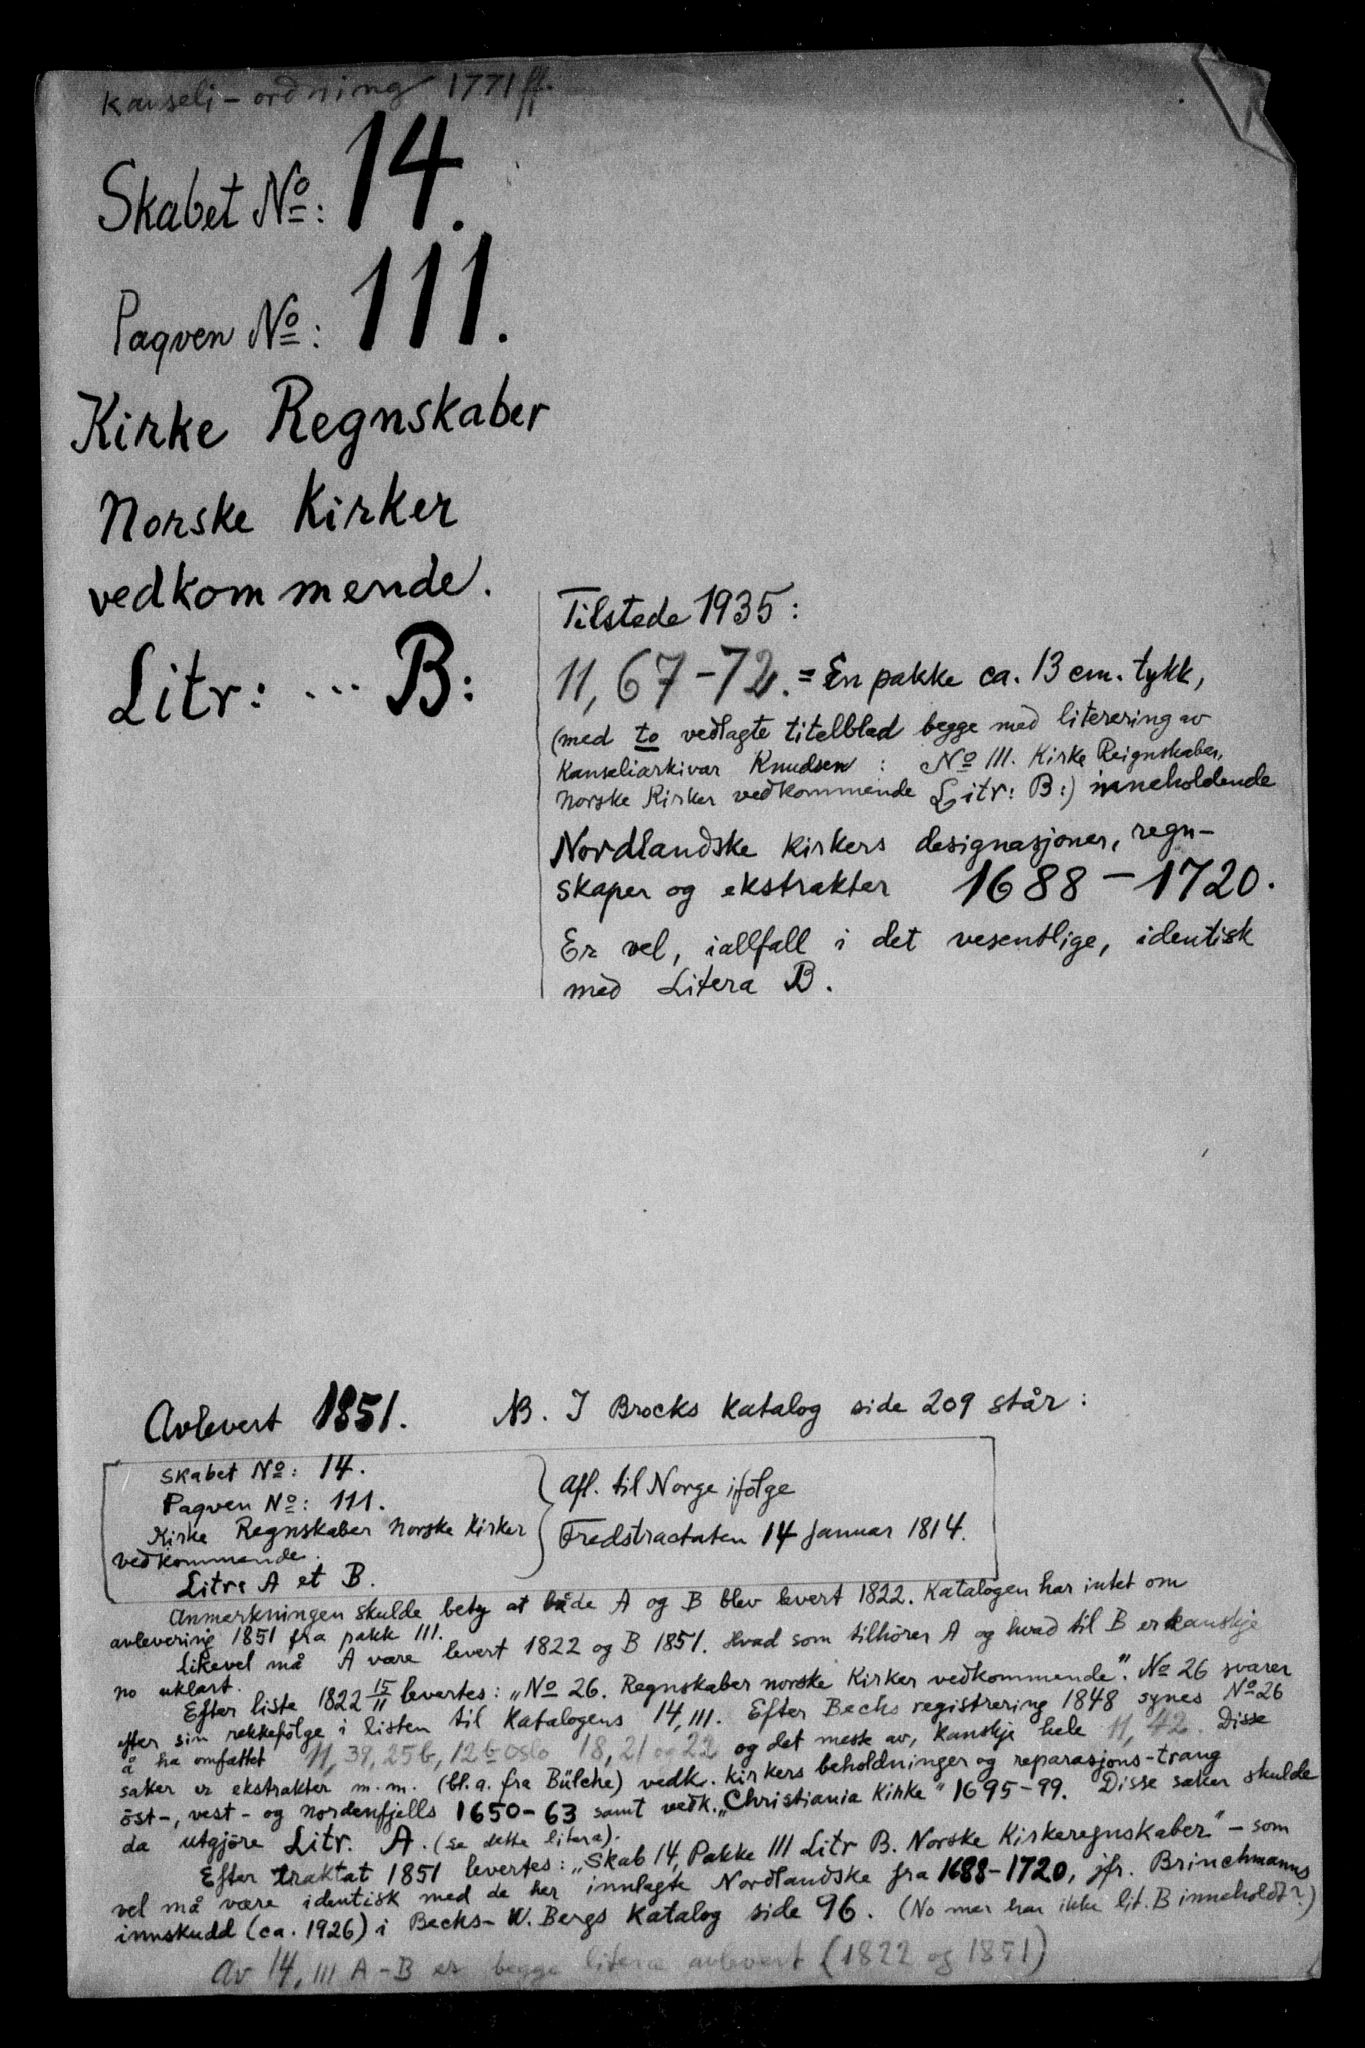 Kanseli-ordning 1771 ff.
Skabet No: 14.
Paqven No: 111.
Kirke Regnskaber
Norske Kirker
vedkommende.
Litr: ... B:
Tilstede 1935:
11, 67-72. = En pakke ca. 13 cm. tykk,
(med to vedlagte titelblad begge med literering av
Kanseliarkivar Knudsen: No 111. Kirke Reignskaber,
Norske Kirker vedkommende Litr: B:) inneholdende
Nordlandske kirkers designasjoner, regn-
skaper og ekstrakter 1688-1720.
Er vel, iallfall i det vesentlige, identisk
med Litera B.
Avlevert 1851. NB. I Brocks katalog side 209 står:
Skabet No: 14.
Paqven No: 111.
Kirke Regnskaber Norske Kirker
vedkommende.
Litra A et B.
Afl. til Norge ifølge
Fredstractaten 14 Januar 1814.
Anmerkningen skulde bety at både A og B blev levert 1822. Katalogen har intet om
avlevering 1851 fra pakk 111.
Likevel må A være levert 1822 og B 1851. Hvad som tilhører A og hvad til B er kanskje
no uklart.
Efter liste 1822 15/11 levertes: „No 26. Regnskaber norske Kirker vedkommende". No 26 svarer
efter sin rekkefølge i listen til Katalogens 14, 111. Efter Bechs registrering 1848 synes No 26
å ha omfattet 11, 39, 25b, 12b Oslo 18, 21 og 22 og det meste av, kanskje hele 11, 42. Disse
saker er ekstrakter m.m. (bl.a. fra Bülche) vedk. kirkers beholdninger og reparasjons-trang
öst-, vest- og nordenfjells 1650-63 samt vedk. „Christiania Kirke" 1695-99. Disse saker skulde
da utgjöre Litr. A. (se dette litera).
Efter traktat 1851 levertes: „Skab 14, Pakke 111 Litr B. Norske Kirkeregnskaber" - som
vel må være identisk med de her innlagte Nordlandske fra 1688-1720, jfr. Brinchmanns
innskudd (ca. 1926) i Bechs-W. Bergs Katalog side 96. (No mer har ikke lit. B inneholdt?)
Av 14, 111 A-B er begge litera avlevert (1822 og 1851)